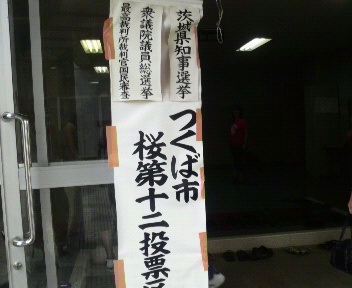 茨城県知事選挙
衆議院議員総選挙
最高裁判所裁判官国民審査
つくば市
桜第十二投票